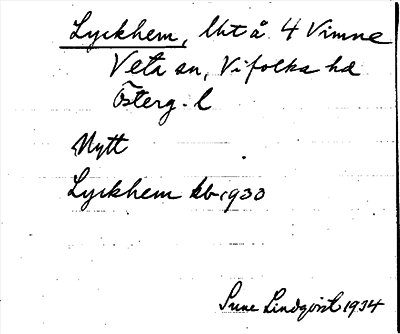 Lyckhem, Utå 4 Vimne
Veta sn, Vifolka hd
Österg. l
Nytt
Lyckhem kb 1930
Sune Lindqvist 1934